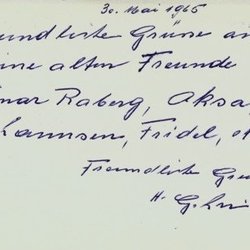 30. Mai 1965
undliche Grüße an
ine alten Freunde
nar Raberg, Aksa
Laumsen, Fridel,
Freundliche Grü
H. G.